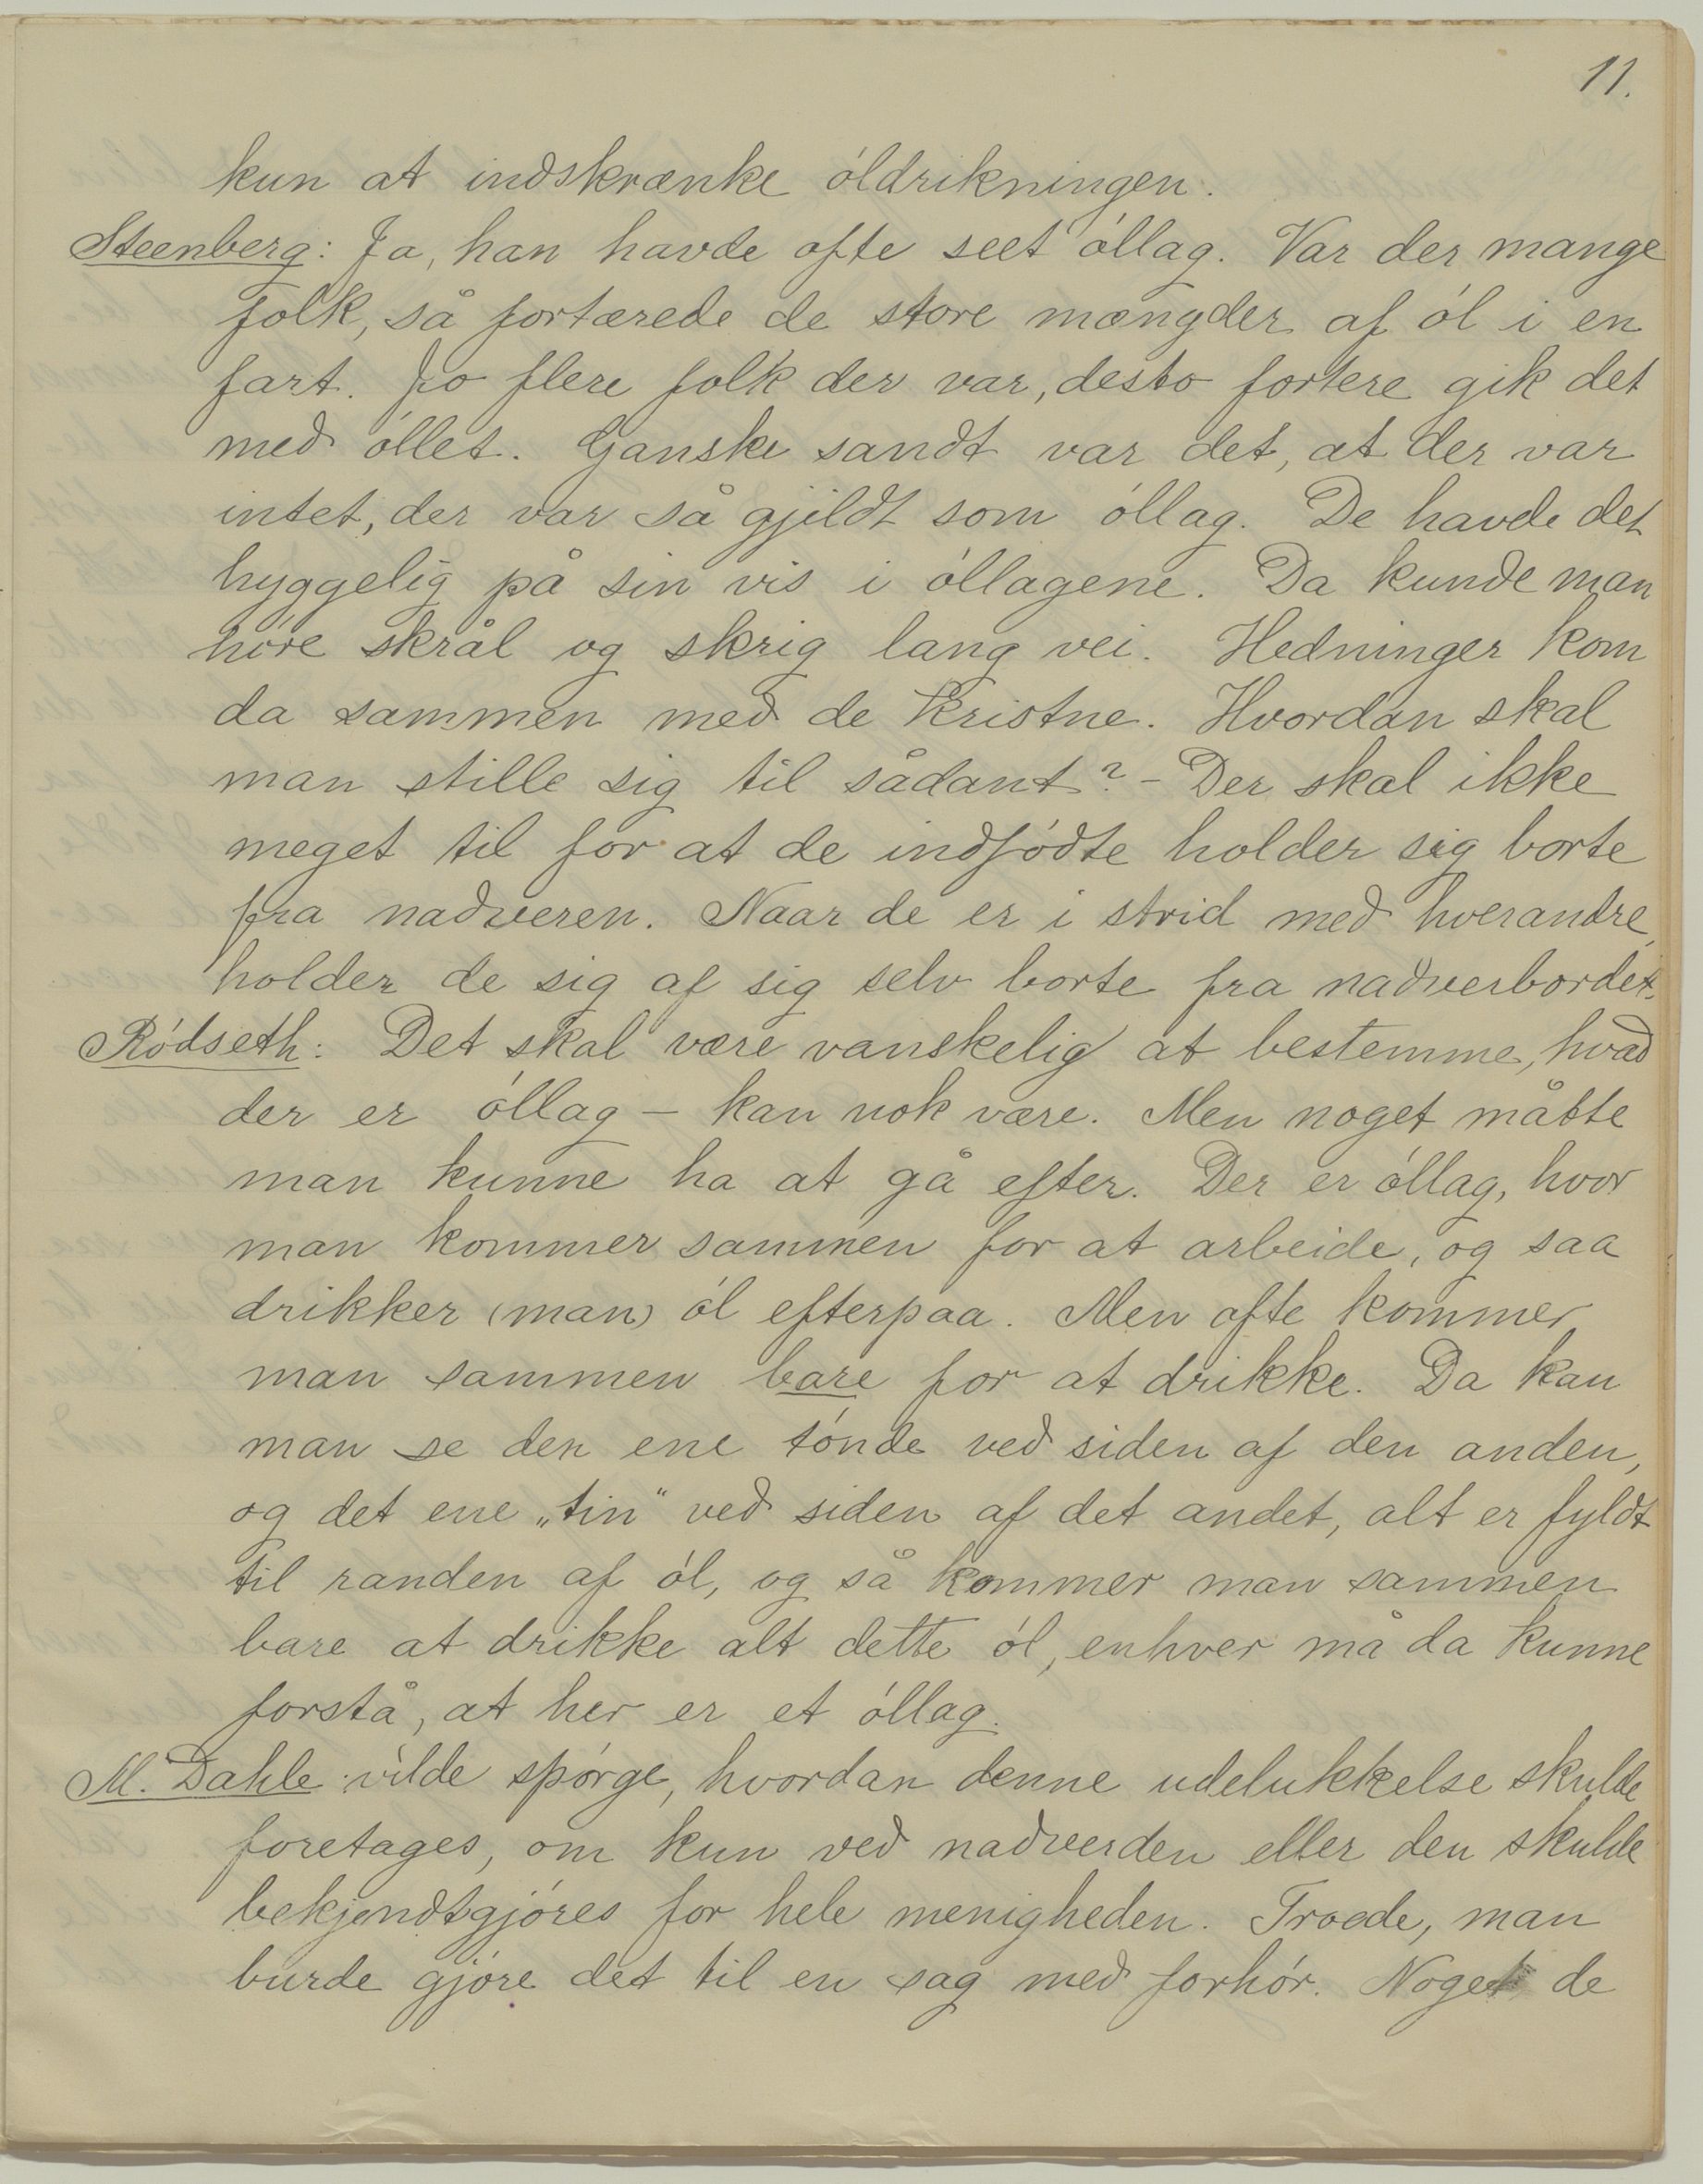 11.
kun at indskrænke óldrikningen.
Steenberg: Ja, han havde ofte seet óllag. Var der mange
folk, så fortærede de store mængder af ól i en
fart. Jo flere folk der var, desto fortere gik det
med óllet. Ganske sandt var det, at der var
intet, der var så gjildt som óllag. De havde det
hyggelig på sin vis i óllagene. Da kunde man
hóre skrål og skrig lang vei. Hedninger kom
da sammen med de kristne. Hvordan skal
man stille sig til sådant? - Der skal ikke
meget til for at de indfódte holder sig borte
fra nadveren. Naar de er i strid med hverandre,
holder de sig af sig selv borte fra nadverbordet.
Ródseth: Det skal være vanskelig at bestemme, hvad
der er óllag - kan nok være. Men noget måtte
man kunne ha at gå efter. Der er óllag, hvor
man kommer sammen for at arbeide, og saa
drikker (man) ól efterpaa. Men ofte kommer
man sammen bare for at drikke. Da kan
man se den ene tónde ved siden af den anden,
og det ene „tin" ved siden af det andet, alt er fyldt
til randen af ól, og så kommer man sammen
bare at drikke alt dette ól, enhver må da kunne
forstå, at her er et óllag.
M. Dahle vilde spórge, hvordan denne udelukkelse skulde
foretages, om kun ved nadverden eller den skulde
bekjendtgjóres for hele menigheden. Troede, man
burde gjóre det til en sag med forhór. Noget de